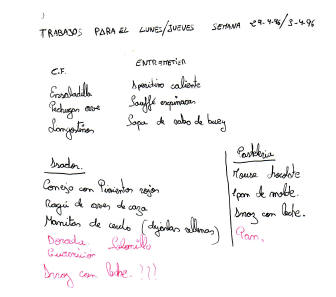 TRABAJOS PARA EL LUNES/JUEVES SEMANA 29-4-96/3-4-96
C.F.
Ensaladilla
Pechugas
Langostinos
ENTREMETIER
Aperitivo caliente
Souffé espinacas
Sopa de rabo de buey
Asador.
Conejo con Pimientos rojos
Ragú de aves de caza
Manitas de cerdo (dejarlas rellenas)
Dorada Salmonillo
Arroz con leche. ???
Pasteleria
Mouse chocolate
pan de molde.
Arroz con leche.
Pan.